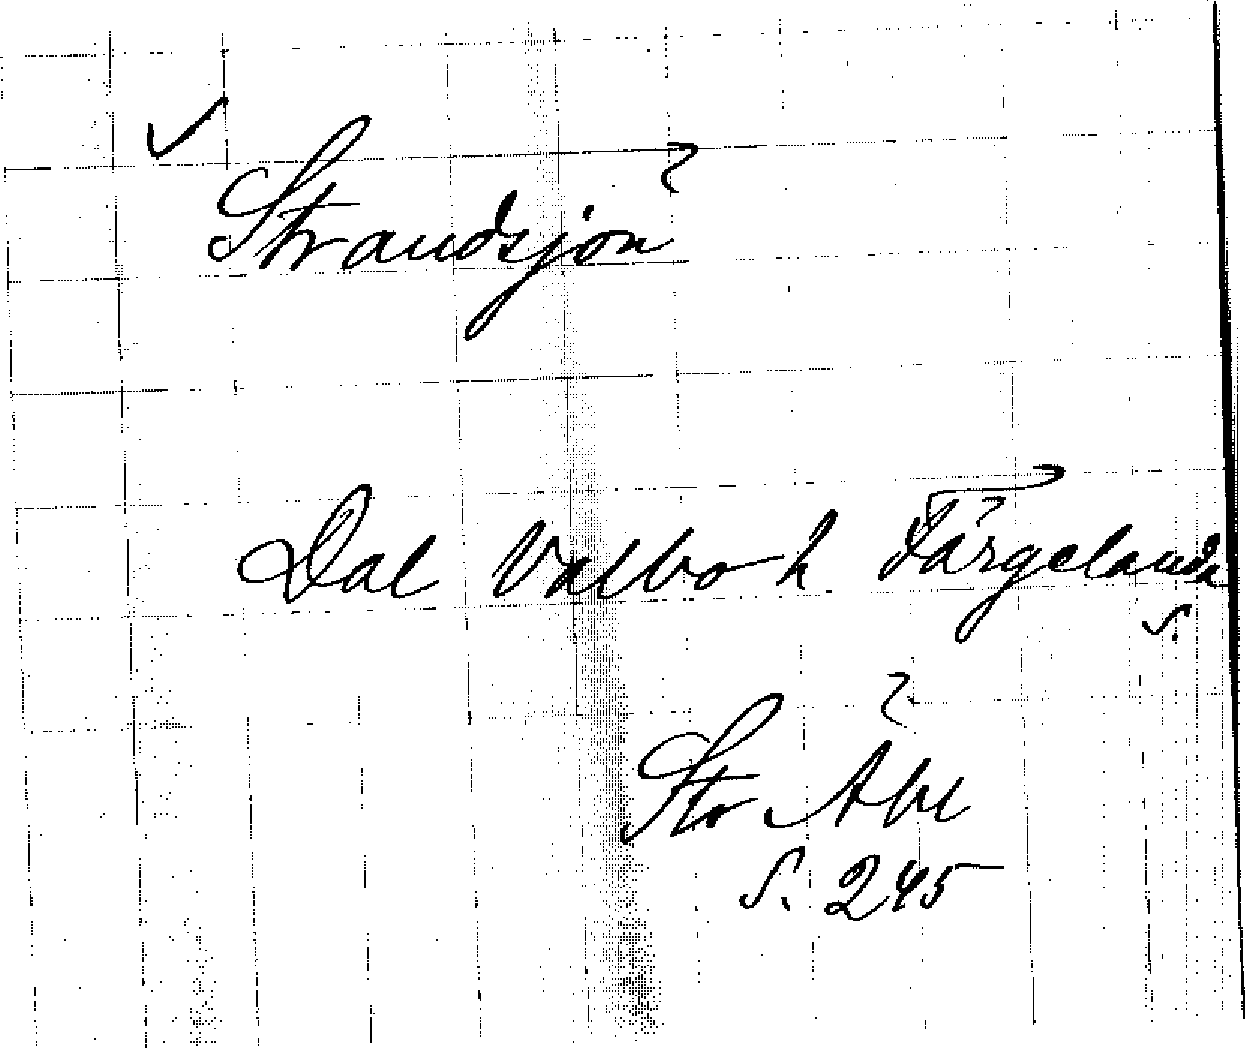 ✓
Strandsjön
Dal Valbo h Färgelanda
s.
Str Åbl
S. 245